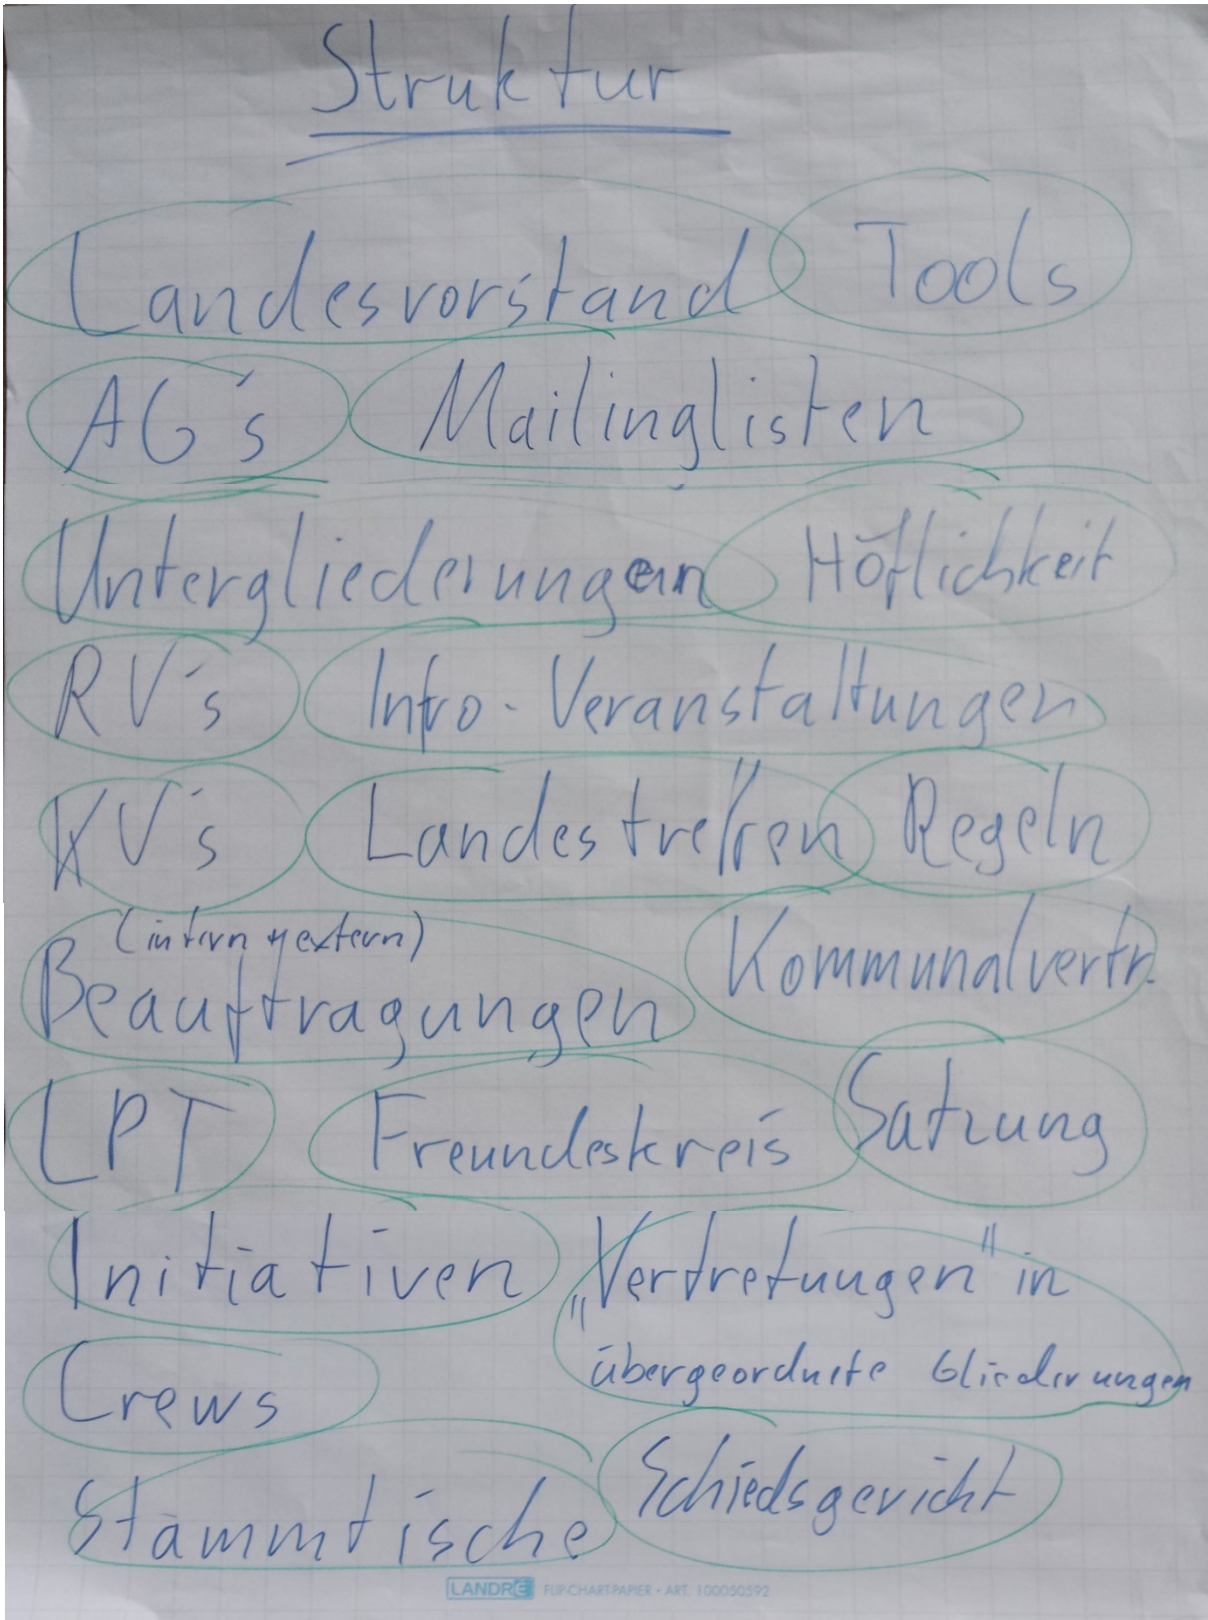 Struktur
Landesvorstand Tools
AG's Mailinglisten
Untergliederungen Höflichkeit
RV's Info-Veranstaltungen
KV's Landestreffen Regeln
(intern + extern)
Beauftragungen Kommunalvertr.
LPT Freundeskreis Satzung
Initiativen „Vertretungen" in
übergeordnete Gliederungen
Crews
Stammtische Schiedsgericht
LANDRÉ FLIP-CHART-PAPIER • ART. 100050592